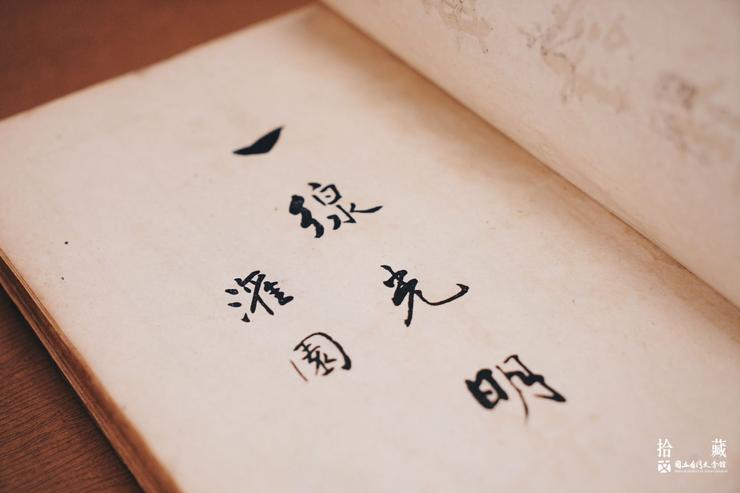 一線光明
灌園
拾藏
國立台灣文學館